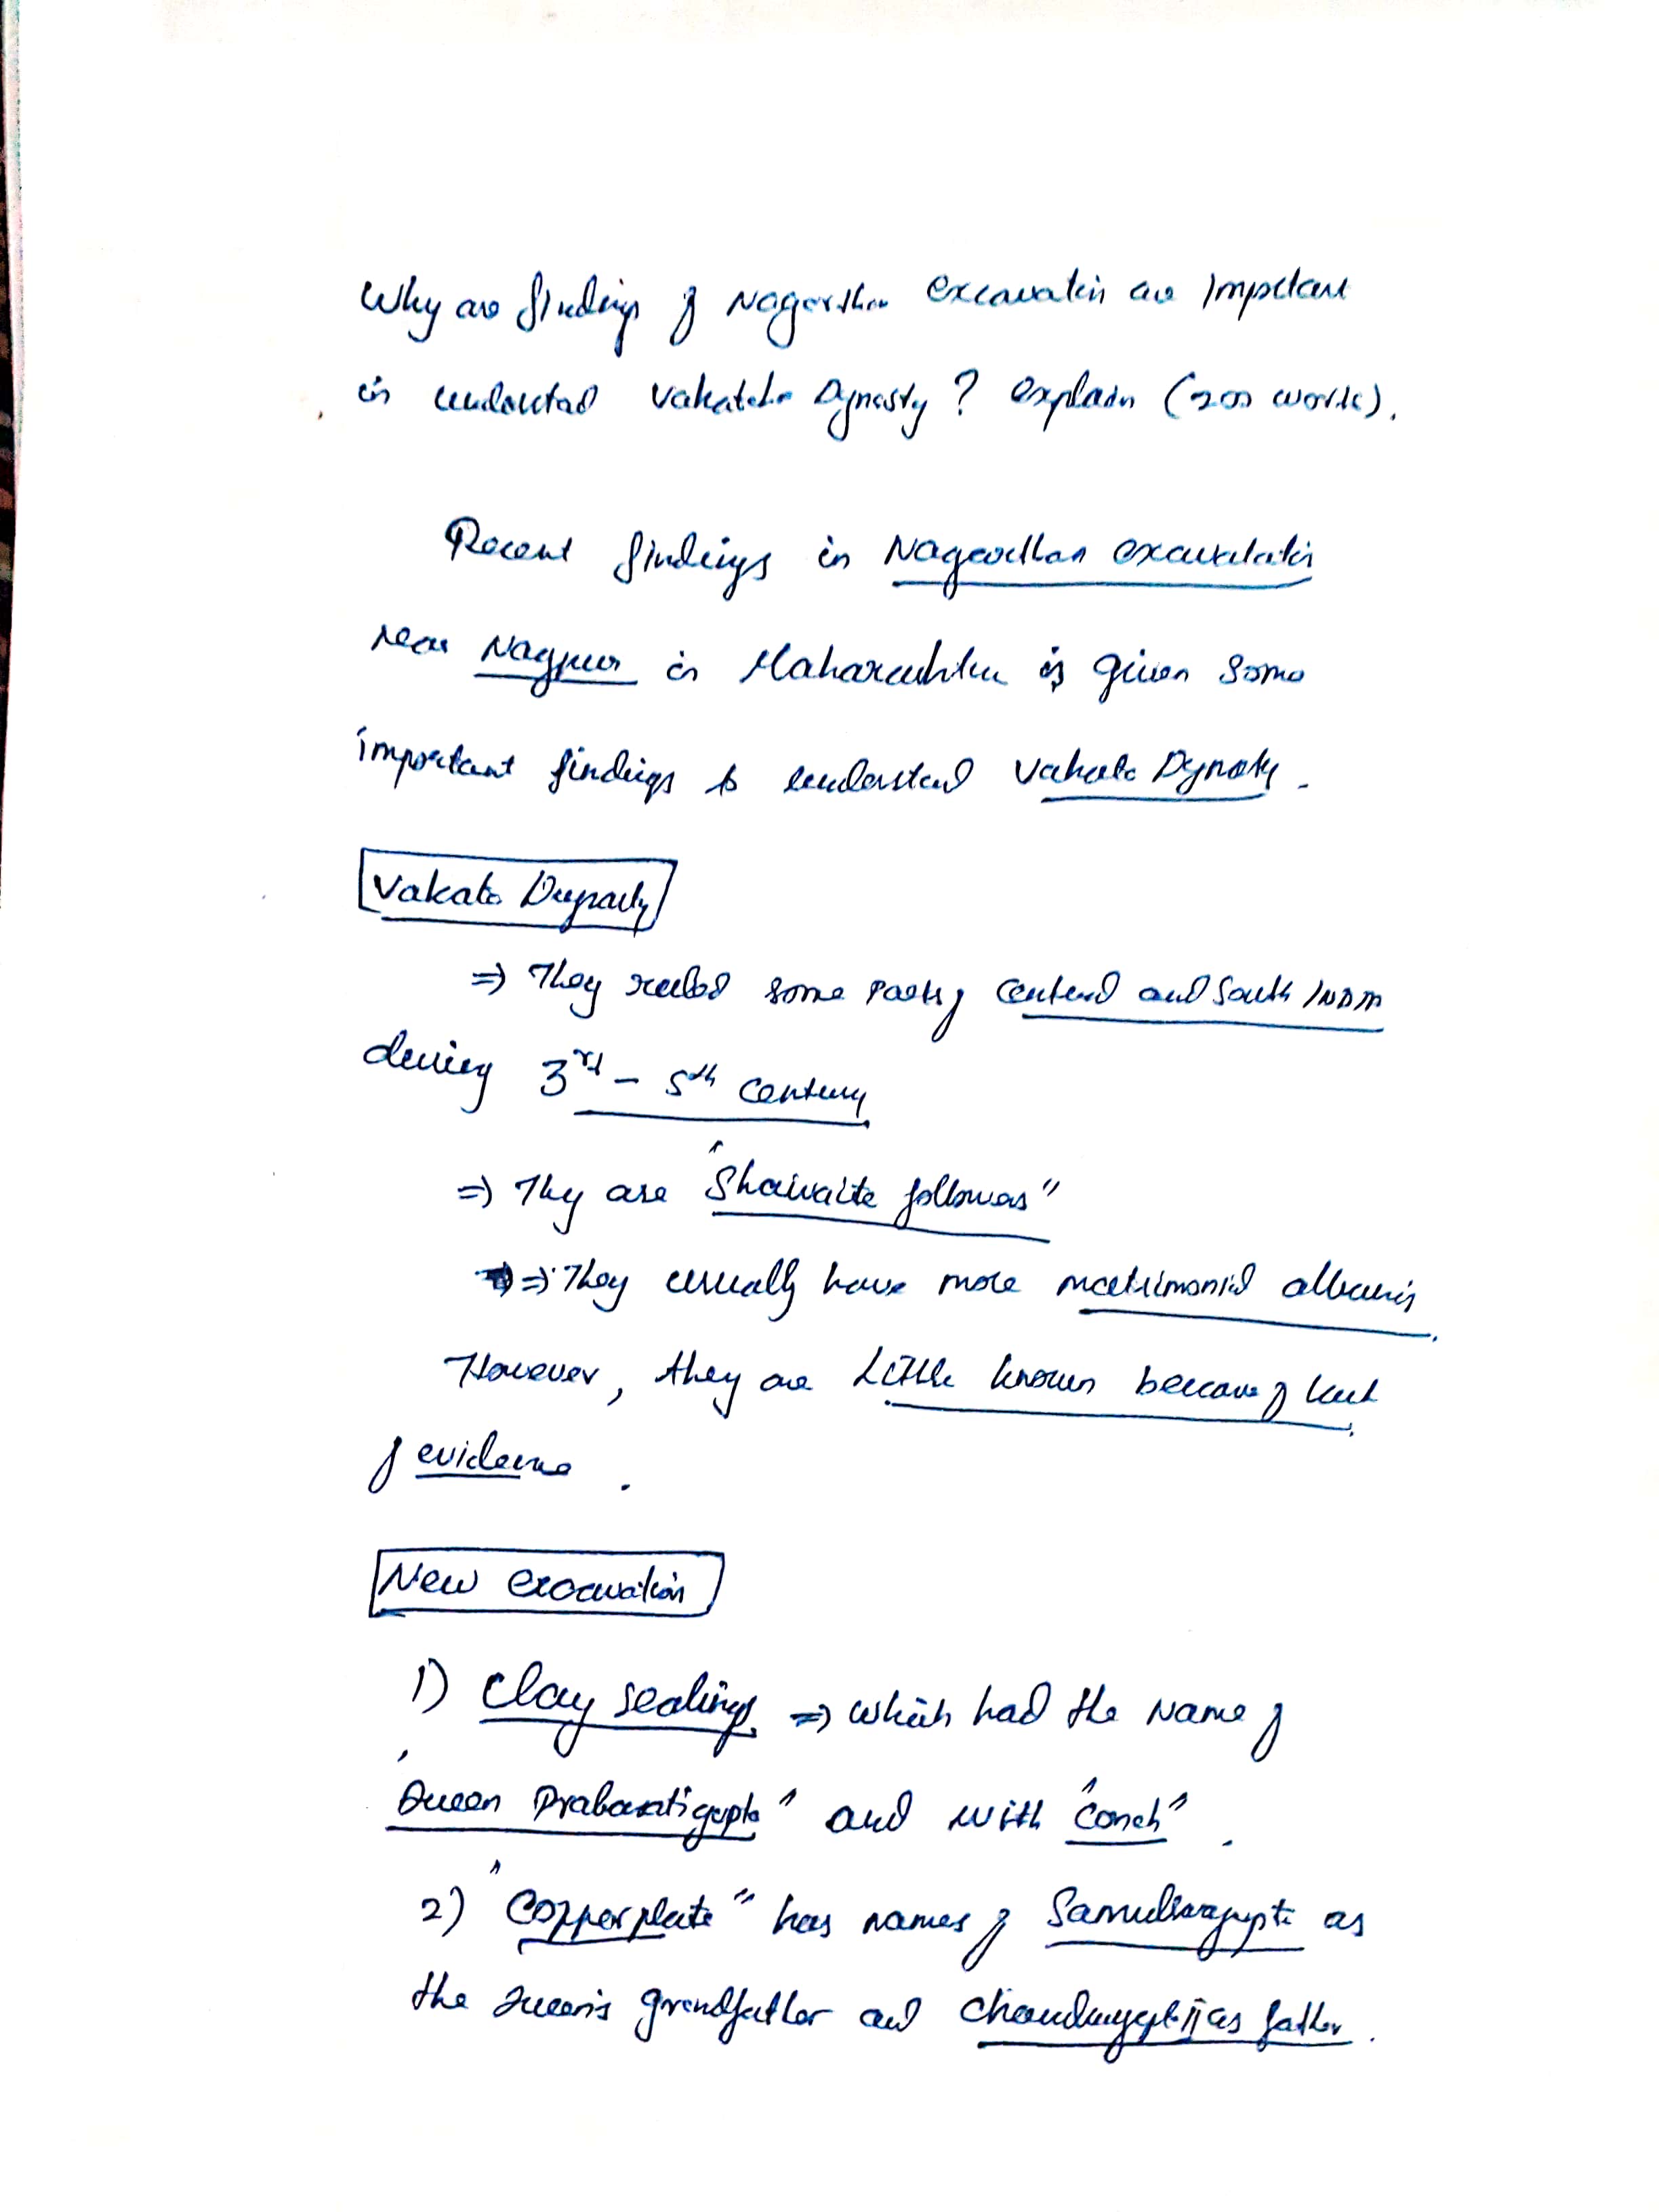 Why are findings of Nagardhan excavation are Important
in understand Vakataka Dynasty ? explain (200 words).
Recent findings in Nagardhan excavatation
near Nagpur in Maharashtra is given some
important findings to understand Vakata Dynasty.
Vakata Dynasty
⇒ They ruled some parts of Central and South INDIA
during 3rd - 5th Century
⇒ They are "Shaivaite followers"
⇒ They usually have more matrimonial alliances.
However, they are Little known because of lack
of evidence.
New excavation
1) Clay sealings ⇒ which had the Name of
"Queen Prabavatigupta" and with "Conch".
2) "Copperplate" has names of Samudragupta as
the Queen's grandfather and Chandragupta II as father.